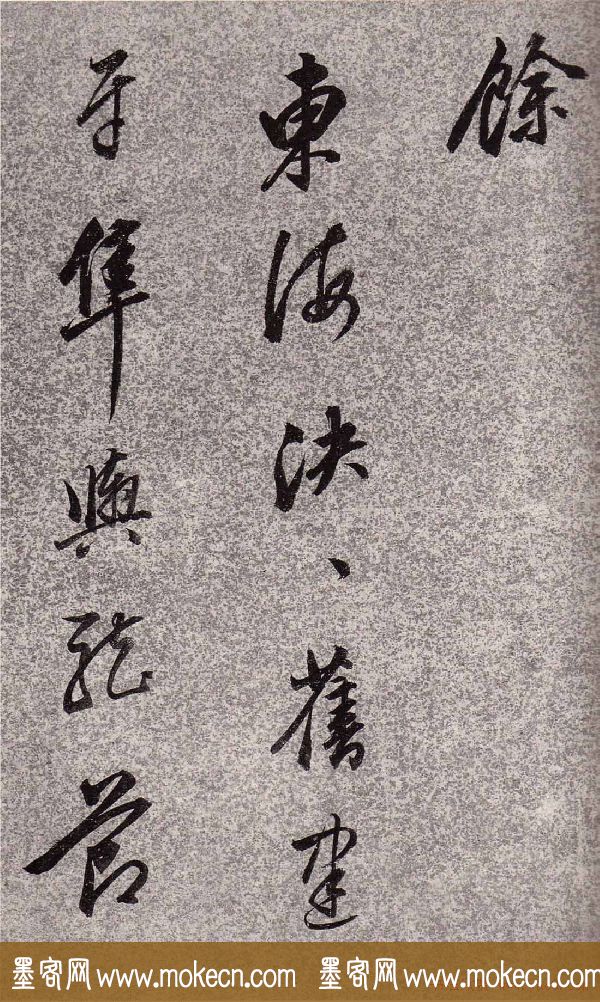 餘
東海泱、舊建
隼與龍節
墨客网 www.mokecn.com 墨客网 www.mokecn.com